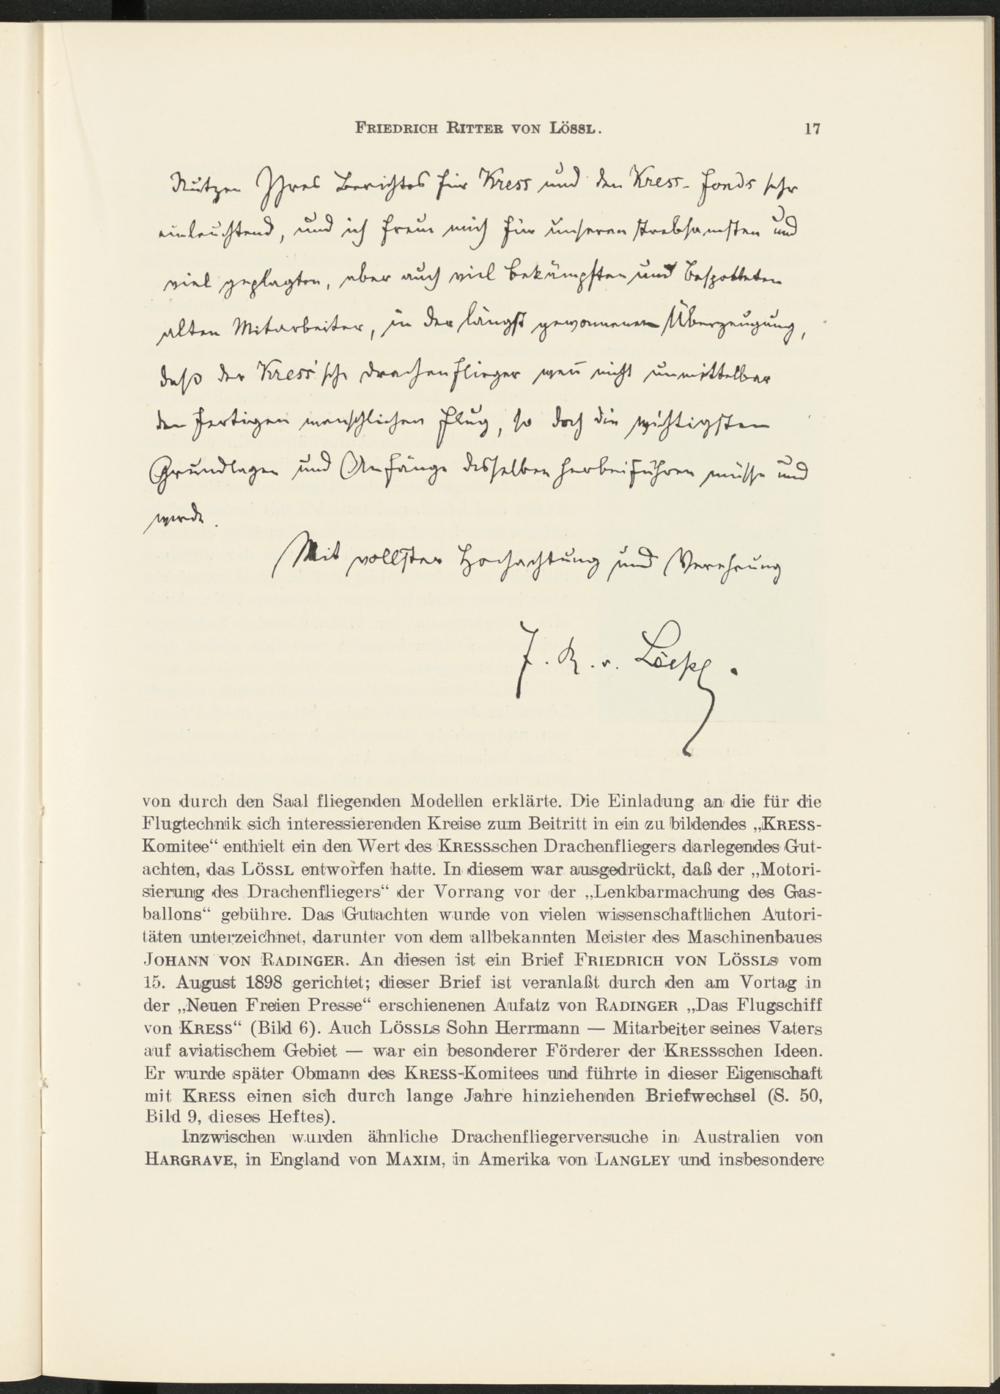 FRIEDRICH RITTER VON LÖSSL. 17
Nutzen Ihres Berichtes für Kress und den Kress-Fonds sehr
einleuchtend, und ich freue mich für unseren strebsamsten und
viel geplagten, aber auch viel bekämpften und bespotteten
alten Mitarbeiter, in der längst gewonnenen Überzeugung,
daß der Kress'sche Drachenflieger wenn nicht unmittelbar
den fertigen menschlichen Flug, so doch die wichtigsten
Grundlagen und Anfänge desselben herbeiführen müsse und
werde.
Mit vollster Hochachtung und Verehrung
F. R. v. Lössl.
von durch den Saal fliegenden Modellen erklärte. Die Einladung an die für die
Flugtechnik sich interessierenden Kreise zum Beitritt in ein zu bildendes „KRESS-
Komitee“ enthielt ein den Wert des KRESSschen Drachenfliegers darlegendes Gut-
achten, das LÖSSL entworfen hatte. In diesem war ausgedrückt, daß der „Motori-
sierung des Drachenfliegers“ der Vorrang vor der „Lenkbarmachung des Gas-
ballons“ gebühre. Das Gutachten wurde von vielen wissenschaftlichen Autori-
täten unterzeichnet, darunter von dem allbekannten Meister des Maschinenbaues
JOHANN VON RADINGER. An diesen ist ein Brief FRIEDRICH VON LÖSSLs vom
15. August 1898 gerichtet; dieser Brief ist veranlaßt durch den am Vortag in
der „Neuen Freien Presse“ erschienenen Aufatz von RADINGER „Das Flugschiff
von KRESS“ (Bild 6). Auch LÖSSLs Sohn Herrmann — Mitarbeiter seines Vaters
auf aviatischem Gebiet — war ein besonderer Förderer der KRESSschen Ideen.
Er wurde später Obmann des KRESS-Komitees und führte in dieser Eigenschaft
mit KRESS einen sich durch lange Jahre hinziehenden Briefwechsel (S. 50,
Bild 9, dieses Heftes).
Inzwischen wurden ähnliche Drachenfliegerversuche in Australien von
HARGRAVE, in England von MAXIM, in Amerika von LANGLEY und insbesondere